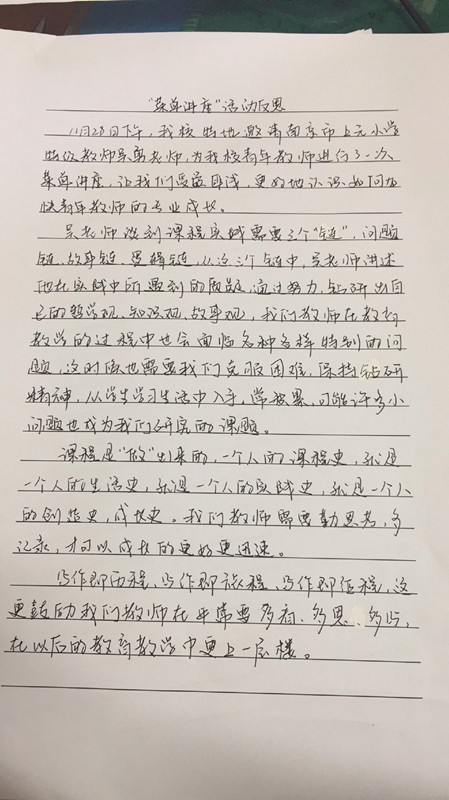 “菜单讲座”活动反思
11月28日下午，我校特地邀请南京市上元小学
特级教师吴勇老师，为我校青年教师进行了一次
菜单讲座，让我们受益匪浅，更好地认识如何加
快青年教师的专业成长。
吴老师谈到课程实践需要三个“链”，问题
链、故事链、逻辑链，从这三个链中，吴老师讲述
他在实践中所遇到的问题，通过努力，钻研出自
己的教学观、知识观、故事观，我们教师在教育
教学的过程中也会面临各种各样特别的问
题，这时候也需要我们克服困难，保持钻研
精神，从学生学习生活中入手，常积累，可能许多小
问题也成为我们研究的课题。
课程是“做”出来的，一个人的课程史，就是
一个人的生活史，就是一个人的实践史，就是一个人
的创造史，成长史。我们教师需要勤思考，多
记录，才可以成长的更好更迅速。
写作即历程、写作即旅程、写作即信程，这
更鼓励我们教师在平常要多看、多思、多写，
在以后的教育教学中更上一层楼。